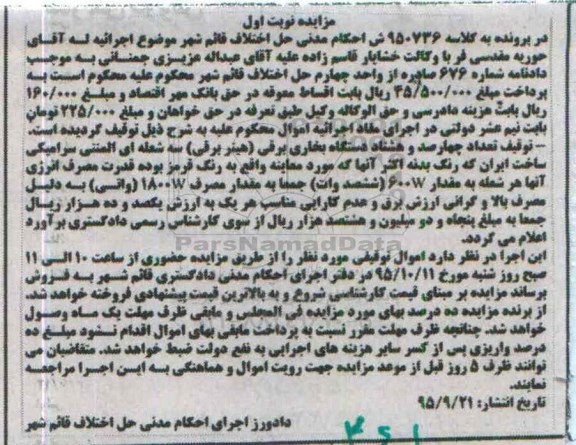 مزایده نوبت اول
در پرونده به کلاسه ۹۵۰۷۳۶ ش احکام مدنی حل اختلاف قائم شهر موضوع اجرائیه له آقای
حوریه مقدسی فر با وکالت خشایار قاسم زاده علیه آقای عبداله عزیزی جمنانی به موجب
دادنامه شماره ۶۷۶ صادره از واحد چهارم حل اختلاف قائم شهر محکوم علیه محکوم است به
پرداخت مبلغ ۴۵/۵۰۰/۰۰۰ ریال بابت اقساط معوقه در حق بانک مهر اقتصاد و مبلغ ۱۶۰/۰۰۰
ریال بابت هزینه دادرسی و حق الوکاله وکیل طبق تعرفه در حق خواهان و مبلغ ۲۲۵/۰۰۰ تومان
بابت نیم عشر دولتی در اجرای مفاد اجرائیه اموال محکوم علیه به شرح ذیل توقیف گردیده است.
- توقیف تعداد چهارصد و هشتاد دستگاه بخاری برقی (هیتر برقی) سه شعله ای المنتی سرامیکی
ساخت ایران که رنگ بدنه اکثر آنها که مورد معاینه واقع به رنگ قرمز بوده قدرت مصرف انرژی
آنها هر شعله به مقدار ۶۰۰W (ششصد وات) جمعا به مقدار مصرف ۱۸۰۰W (واتسی) به دلیل
مصرف بالا و گرانی ارزش برق و عدم کارایی مناسب هر یک به ارزش یکصد و ده هزار ریال
جمعا به مبلغ پنجاه و دو میلیون و هشتصد هزار ریال از سوی کارشناس رسمی دادگستری برآورد
اعلام می گردد.
ParsNamadData
این اجرا در نظر دارد اموال توقیفی مورد نظر را از طریق مزایده حضوری از ساعت ۱۰ الی ۱۱
صبح روز شنبه مورخ ۹۵/۱۰/۱۱ در دفتر اجرای احکام مدنی دادگستری قائم شهر به فروش
برساند مزایده بر مبنای قیمت کارشناسی شروع و به بالاترین قیمت پیشنهادی فروخته خواهد شد.
از برنده مزایده ده درصد بهای مورد مزایده فی المجلس و مابقی ظرف مهلت یک ماه وصول
خواهد شد. چنانچه ظرف مهلت مقرر نسبت به پرداخت مابقی بهای اموال اقدام نشود مبلغ ده
درصد واریزی پس از کسر سایر هزینه های اجرایی به نفع دولت ضبط خواهد شد. متقاضیان می
توانند ظرف ۵ روز قبل از موعد مزایده جهت رویت اموال و هماهنگی به این اجرا مراجعه
نمایند.
تاریخ انتشار: ۹۵/۹/۲۱
دادورز اجرای احکام مدنی حل اختلاف قائم شهر